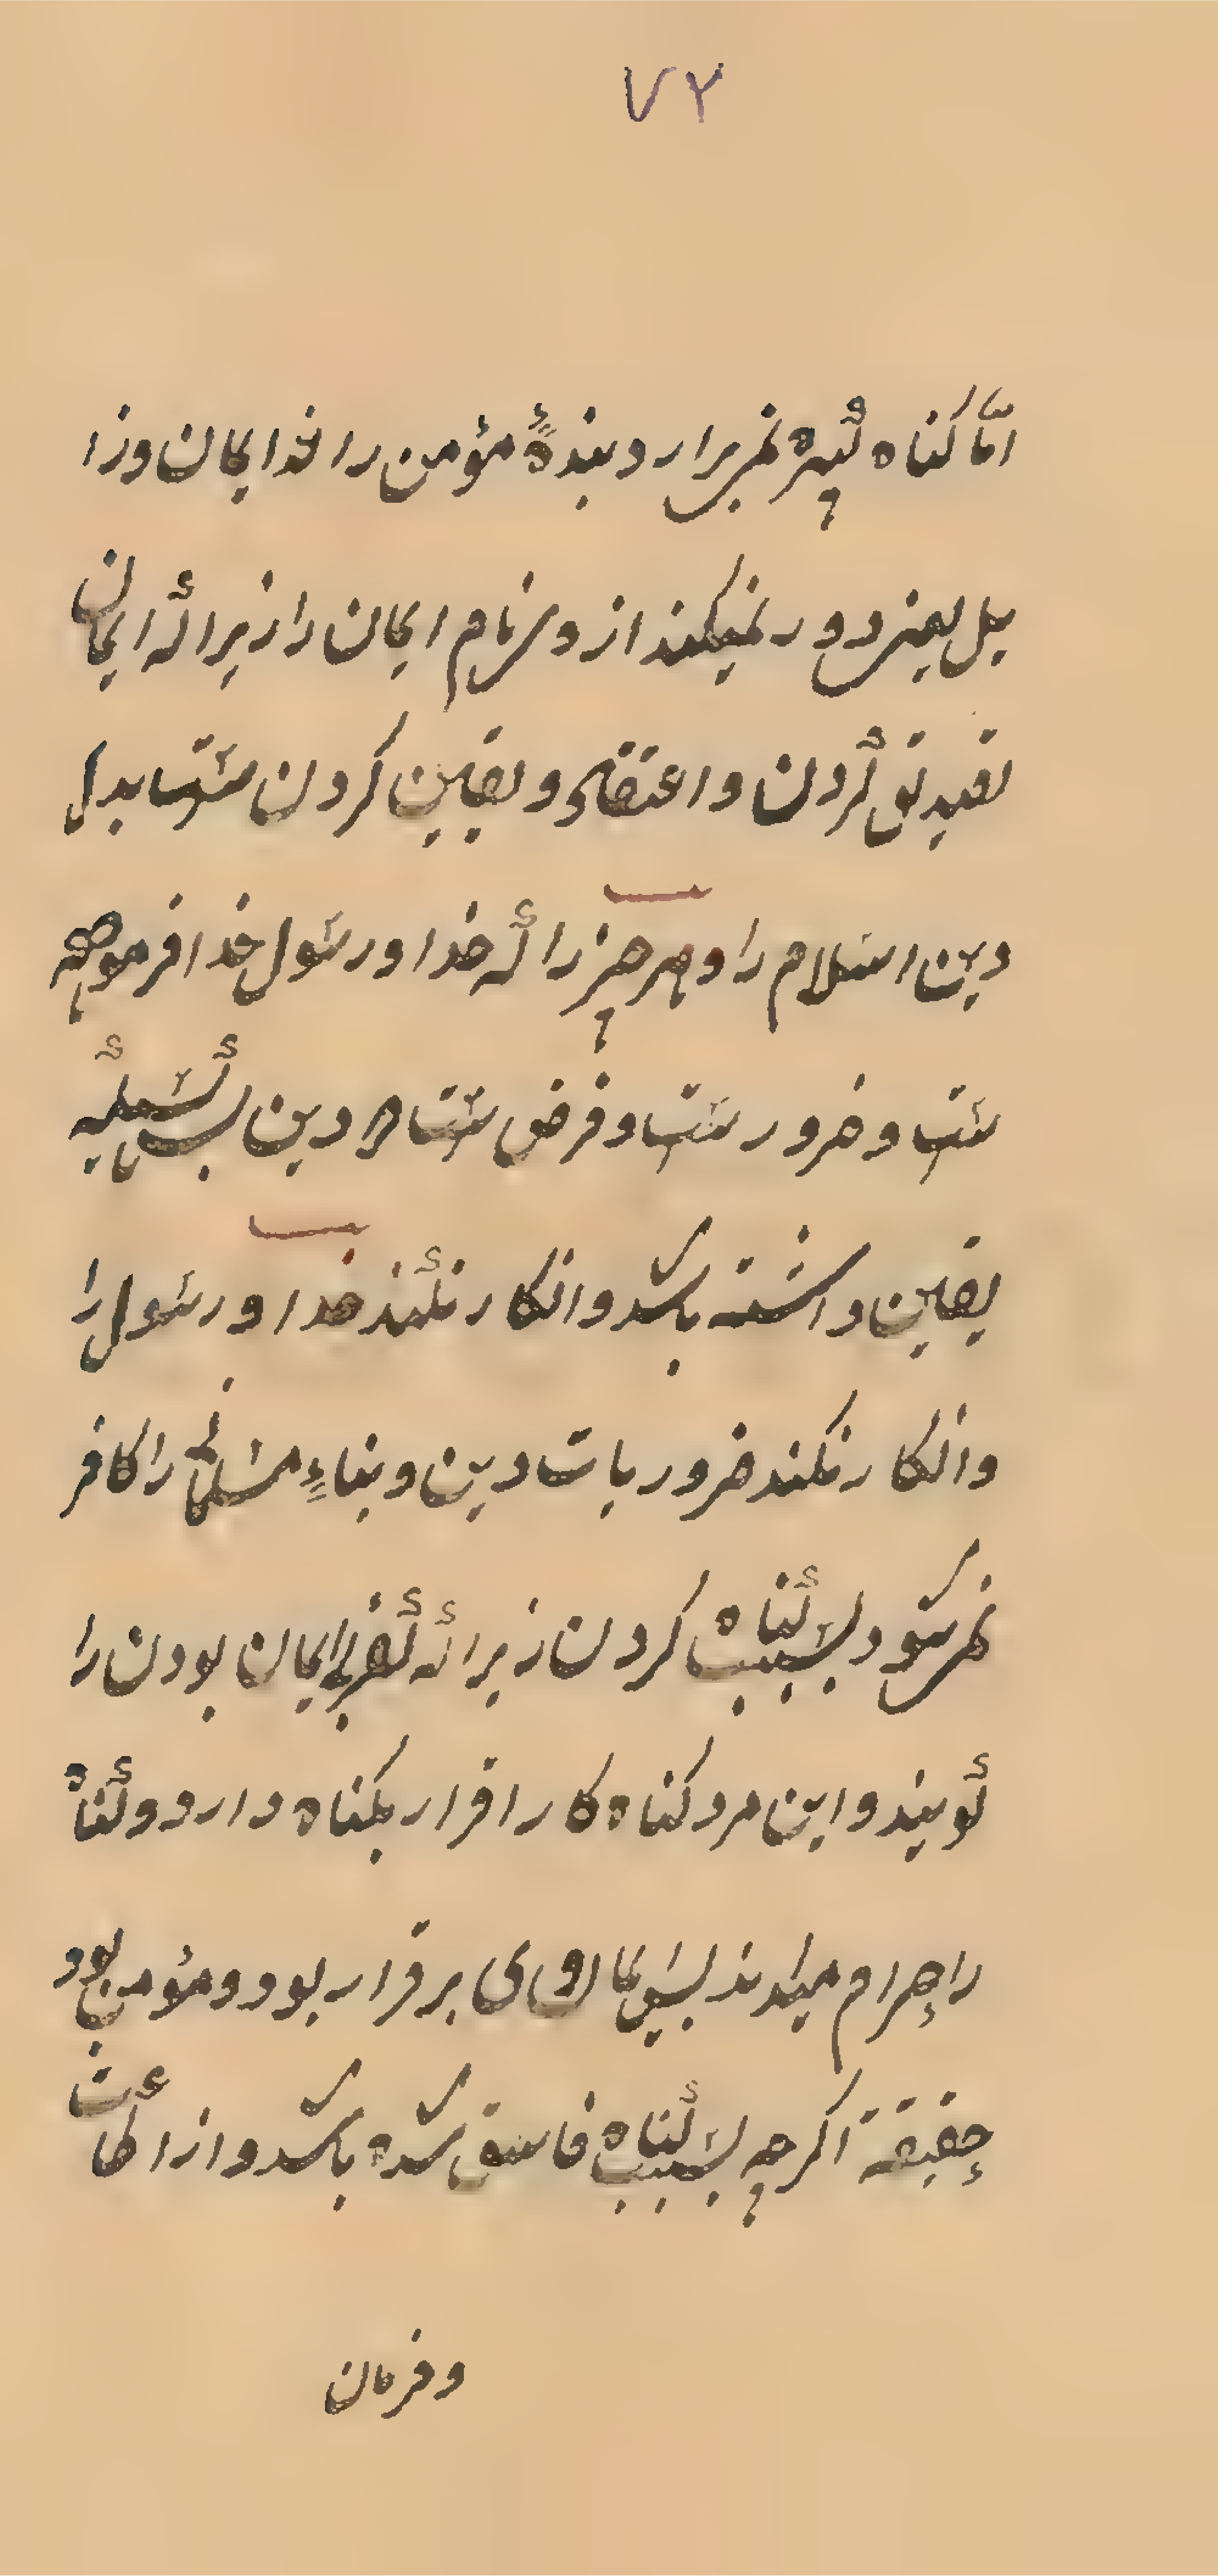 ٧٢
امّا کناه کبیره نمی برارد بندهٔ مؤمن را از ایمان و زا
یل یعنی دور نمیکند از وی نام ایمان را زیرا که ایمان
تصدیق کردن و اعتقاد و یقین کردن ست بدل
دین اسلام را و هر چیز را که خدا و رسول خدا فرموده
ست و ضرور ست و فرض ست در دین پس کسیکه
یقین داشته باشد و انکار نکند خدا و رسول را
و انکار نکند ضروریات دین و بناءِ مسلمانی را کافر
نمی شود بسبب کناه کردن زیرا که کفر بی ایمان بودن را
کویند و این مرد کناه کار اقرار بکناه دارد و کناه
را حرام میداند پس ایمان وی برقرار بود و مؤمن بود
حقیقة اکرچه بسبب کناه فاسق شده باشد و از اطاعت
و فرمان